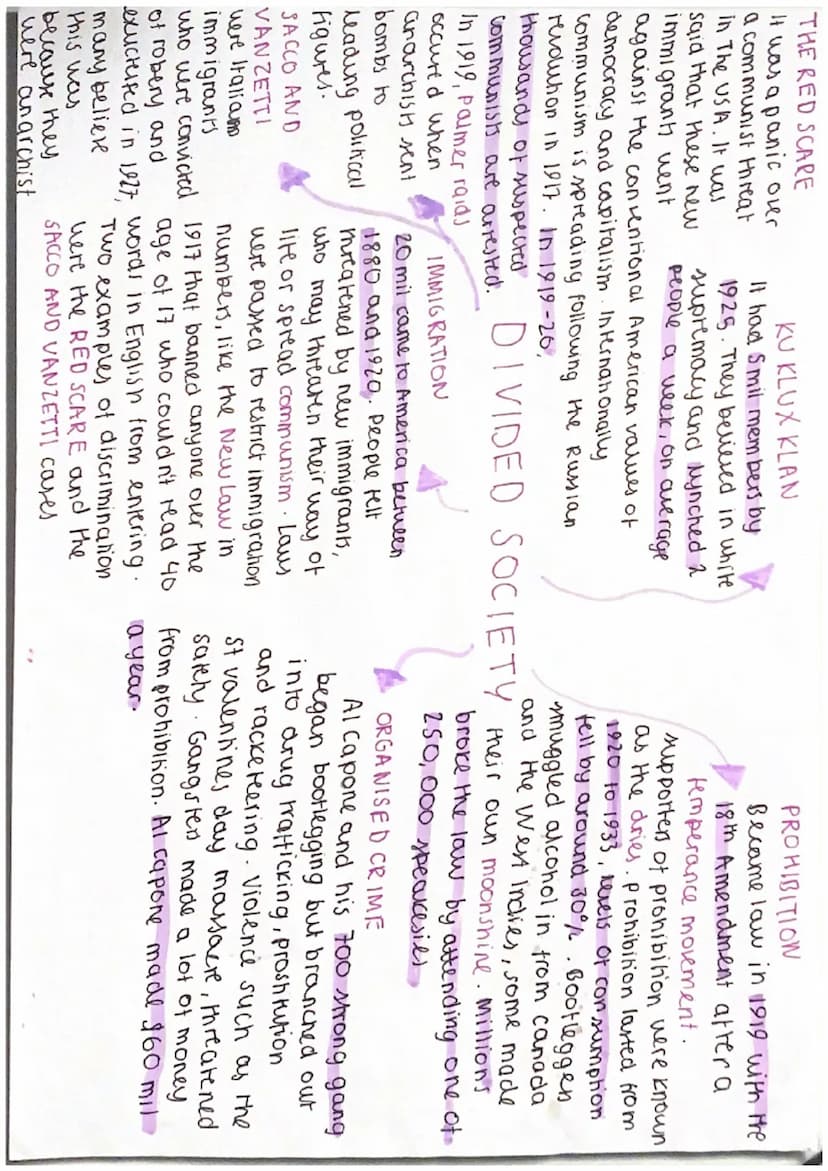 THE RED SCARE
It was a panic over
a communist threat
in the USA. It was
said that these new
immigrants went
against the conventional American values of
democracy and capitalism. Internationally
communism is spreading following the Russian
revolution in 1917. In 1919-20,
thousands of suspected
communists are arrested.
In 1919, palmer raids
occured when
anarchists sent
bombs to
leading political
figures.
SACCO AND
VANZETTI
were Italian
immigrants
who were convicted
of robery and
exectuted in 1927,
many believe
this was
because they
were anarchist
KU KLUX KLAN
It had 5 mil members by
1925. They believed in white
supremacy and lynched 2
people a week, on average
DIVIDED SOCIETY
IMMIGRATION
20 mil came to America between
1880 and 1920. People felt
threatened by new immigrants,
who may threaten their way of
life or spread communism. Laws
were passed to restrict immigration
numbers, like the New Law in
1917 that banned anyone over the
age of 17 who couldn't read 40
words in English from entering.
Two examples of discrimination
were the RED SCARE and the
SACCO AND VANZETTI cases
PROHIBITION
Became law in 1919 with the
18th Amendment after a
temperance movement.
supporters of prohibition were known
as the dries. prohibition lasted from
1920 to 1933, levels of consumption
fell by around 30%. Bootleggers
smuggled alcohol in from canada
and the West Indies, some made
their own moonshine. Millions
broke the law by attending one of
250,000 speakesies
ORGANISED CRIME
Al Capone and his 700 strong gang
began bootlegging but branched out
into drug trafficking, prostitution
and racketeering. Violence such as the
St valentines day massacre, threatened
safety. Gangsters made a lot of money
from prohibition. Al Capone made $60 mil
a year.